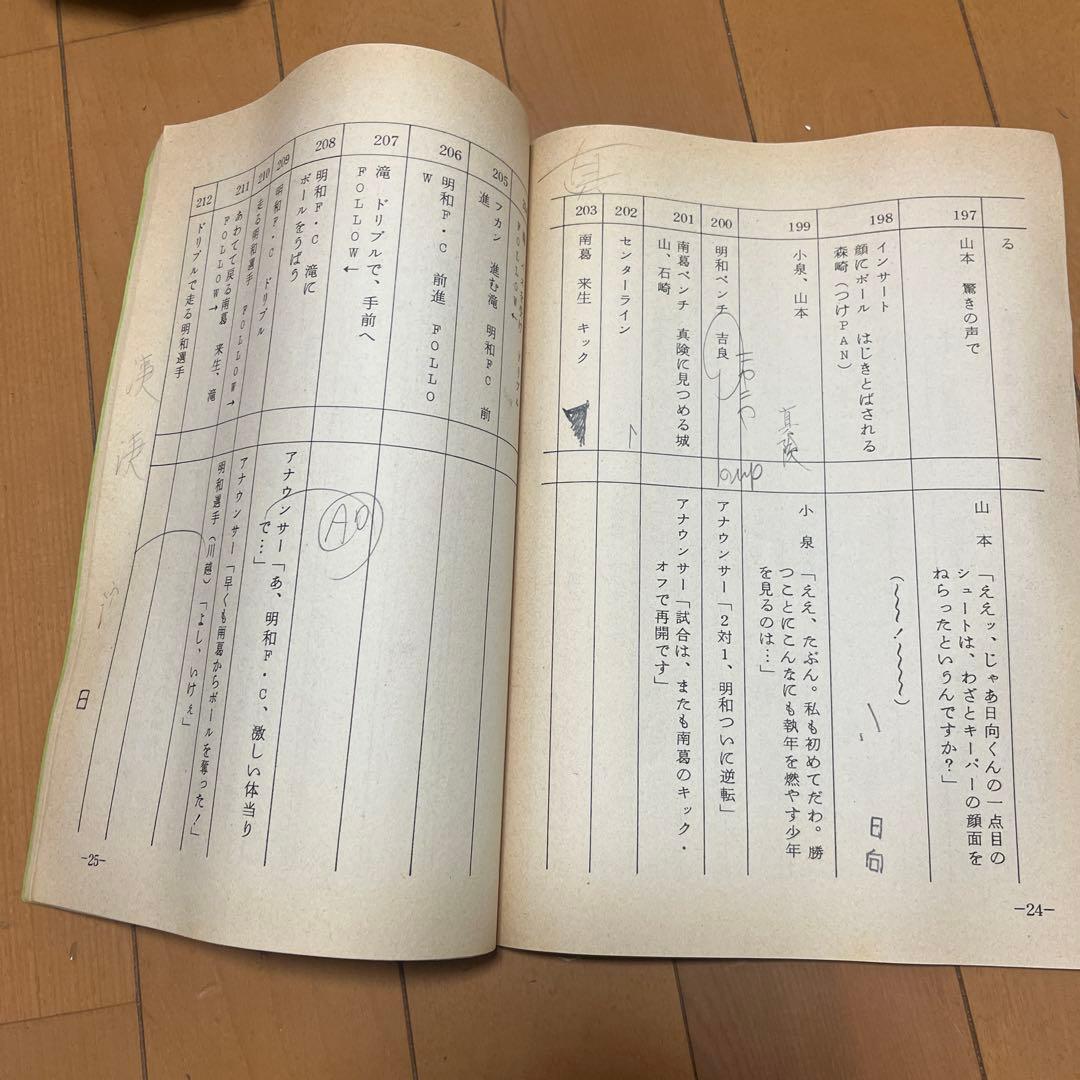 る
197
山本 驚きの声で
山本
「ええッ、じゃあ日向くんの一点目の
シュートは、わざとキーパーの顔面を
ねらったというんですか？」
198
インサート
顔にボール はじきとばされる
森崎(つけPAN)
(〜〜！〜〜〜)
日向
199
小泉、山本
真険
小泉
「ええ、たぶん。私も初めてだわ。勝
つことにこんなにも執年を燃やす少年
を見るのは…」
200
明和ベンチ 吉良
アナウンサー「2対1、明和ついに逆転」
201
南葛ベンチ 真険に見つめる城
山、石崎
アナウンサー「試合は、またも南葛のキック・
オフで再開です」
202
センターライン
203
南葛 来生 キック
真
－24－
205
フカン 進む滝 明和FC 前
進
206
明和F・C 前進 FOLLO
W
207
滝 ドリブルで、手前へ
FOLLOW←
208
明和F・C 滝に
ボールをうばう
A0
209
明和F・C ドリブル
アナウンサー「あ、明和F・C、激しい体当り
で…」
210
走る明和選手 FOLLOW→
アナウンサー「早くも南葛からボールを奪った！」
211
あわてて戻る南葛 来生、滝
FOLLOW→
明和選手(川越)「よし、いけぇ」
212
ドリブルで走る明和選手
日
－25－